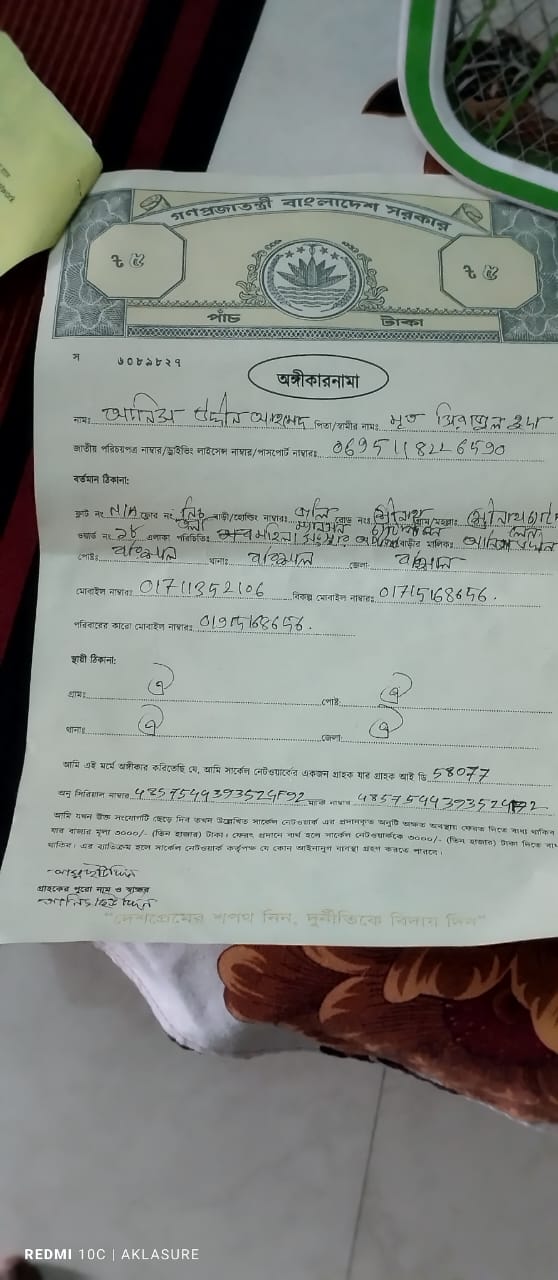 গণপ্রজাতন্ত্রী বাংলাদেশ সরকার
৳ ৫
৳ ৫
পাঁচ টাকা
স ৬০৮৯৮২৭
অঙ্গীকারনামা
নামঃ পিতা/স্বামীর নামঃ মৃত
জাতীয় পরিচয়পত্র নাম্বার/ড্রাইভিং লাইসেন্স নাম্বার/পাসপোর্ট নাম্বারঃ 06951182246590
বর্তমান ঠিকানা:
ফ্লাট নং N/A ফ্লোর নং নিচ তলা বাড়ী/হোল্ডিং নাম্বারঃ রোড নংঃ গ্রাম/মহল্লাঃ
ওয়ার্ড নং এলাকা পরিচিতিঃ বাড়ীর মালিকঃ
পোষ্টঃ বরিশাল থানাঃ বরিশাল জেলা বরিশাল
মোবাইল নাম্বারঃ 01711352106 বিকল্প মোবাইল নাম্বারঃ 01715168656.
পরিবারের কারো মোবাইল নাম্বারঃ 01915168656.
স্থায়ী ঠিকানা:
গ্রামঃ ঐ পোষ্ট: ঐ
থানাঃ ঐ জেলা: ঐ
আমি এই মর্মে অঙ্গীকার করিতেছি যে, আমি সার্কেল নেটওয়ার্কের একজন গ্রাহক যার গ্রাহক আই ডি 58077
অনু সিরিয়াল নাম্বার 4857544393524F92 ম্যাক নাম্বার
আমি যখন উক্ত সংযোগটি ছেড়ে দিব তখন উল্লেখিত সার্কেল নেটওয়ার্ক এর প্রদানকৃত অনুটি অক্ষত অবস্থায় ফেরত দিতে বাধ্য থাকিব
যার বাজার মূল্য ৩০০০/- (তিন হাজার) টাকা। ফেরৎ প্রদানে ব্যর্থ হলে সার্কেল নেটওয়ার্ককে ৩০০০/- (তিন হাজার) টাকা দিতে বাধ্য
থাকিব। এর ব্যতিক্রম হলে সার্কেল নেটওয়ার্ক কর্তৃপক্ষ যে কোন আইনানুগ ব্যবস্থা গ্রহণ করতে পারবে।
গ্রাহকের পুরো নাম ও স্বাক্ষর
"দেশপ্রেমের শপথ নিন, দুর্নীতিকে বিদায় দিন"
REDMI 10C | AKLASURE